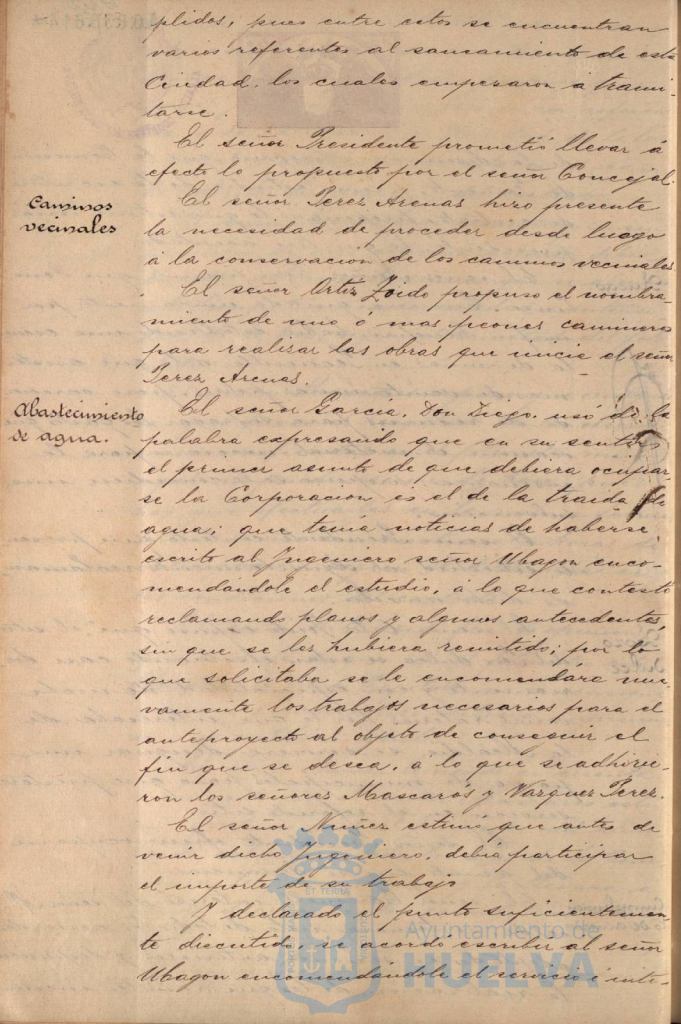 plidos, pues entre estos se encuentran
varios referentes al saneamiento de esta
Ciudad, los cuales empezaron á trami-
tarse.
El señor Presidente prometió llevar á
efecto lo propuesto por el señor Concejal.
Caminos
vecinales
El señor Perez Arenas hizo presente
la necesidad de proceder desde luego
á la conservación de los caminos vecinales.
El señor Ortiz Zoido propuso el nombra-
miento de uno ó mas peones camineros
para realizar las obras que inicie el señor
Perez Arenas.
Abastecimiento
de agua.
El señor García, Don Diego, usó de la
palabra expresando que en su sentir
el primer asunto de que debiera ocupar-
se la Corporacion es el de la traida de
agua; que tenía noticias de haberse
escrito al Ingeniero señor Ubagon enco-
mendándole el estudio, á lo que contestó
reclamando planos y algunos antecedentes,
sin que se les hubiera remitido; por lo
que solicitaba se le encomendára nue-
vamente los trabajos necesarios para el
anteproyecto al objeto de conseguir el
fin que se desea, á lo que se adhirie-
ron los señores Mascarós y Vazquez Perez.
El señor Nuñez estimó que antes de
venir dicho Ingeniero, debia participar
el importe de su trabajo
Y declarado el punto suficientemen-
te discutido, se acordo escribir al señor
Ubagon encomendándole el servicio é inte-
Ayuntamiento de
HUELVA